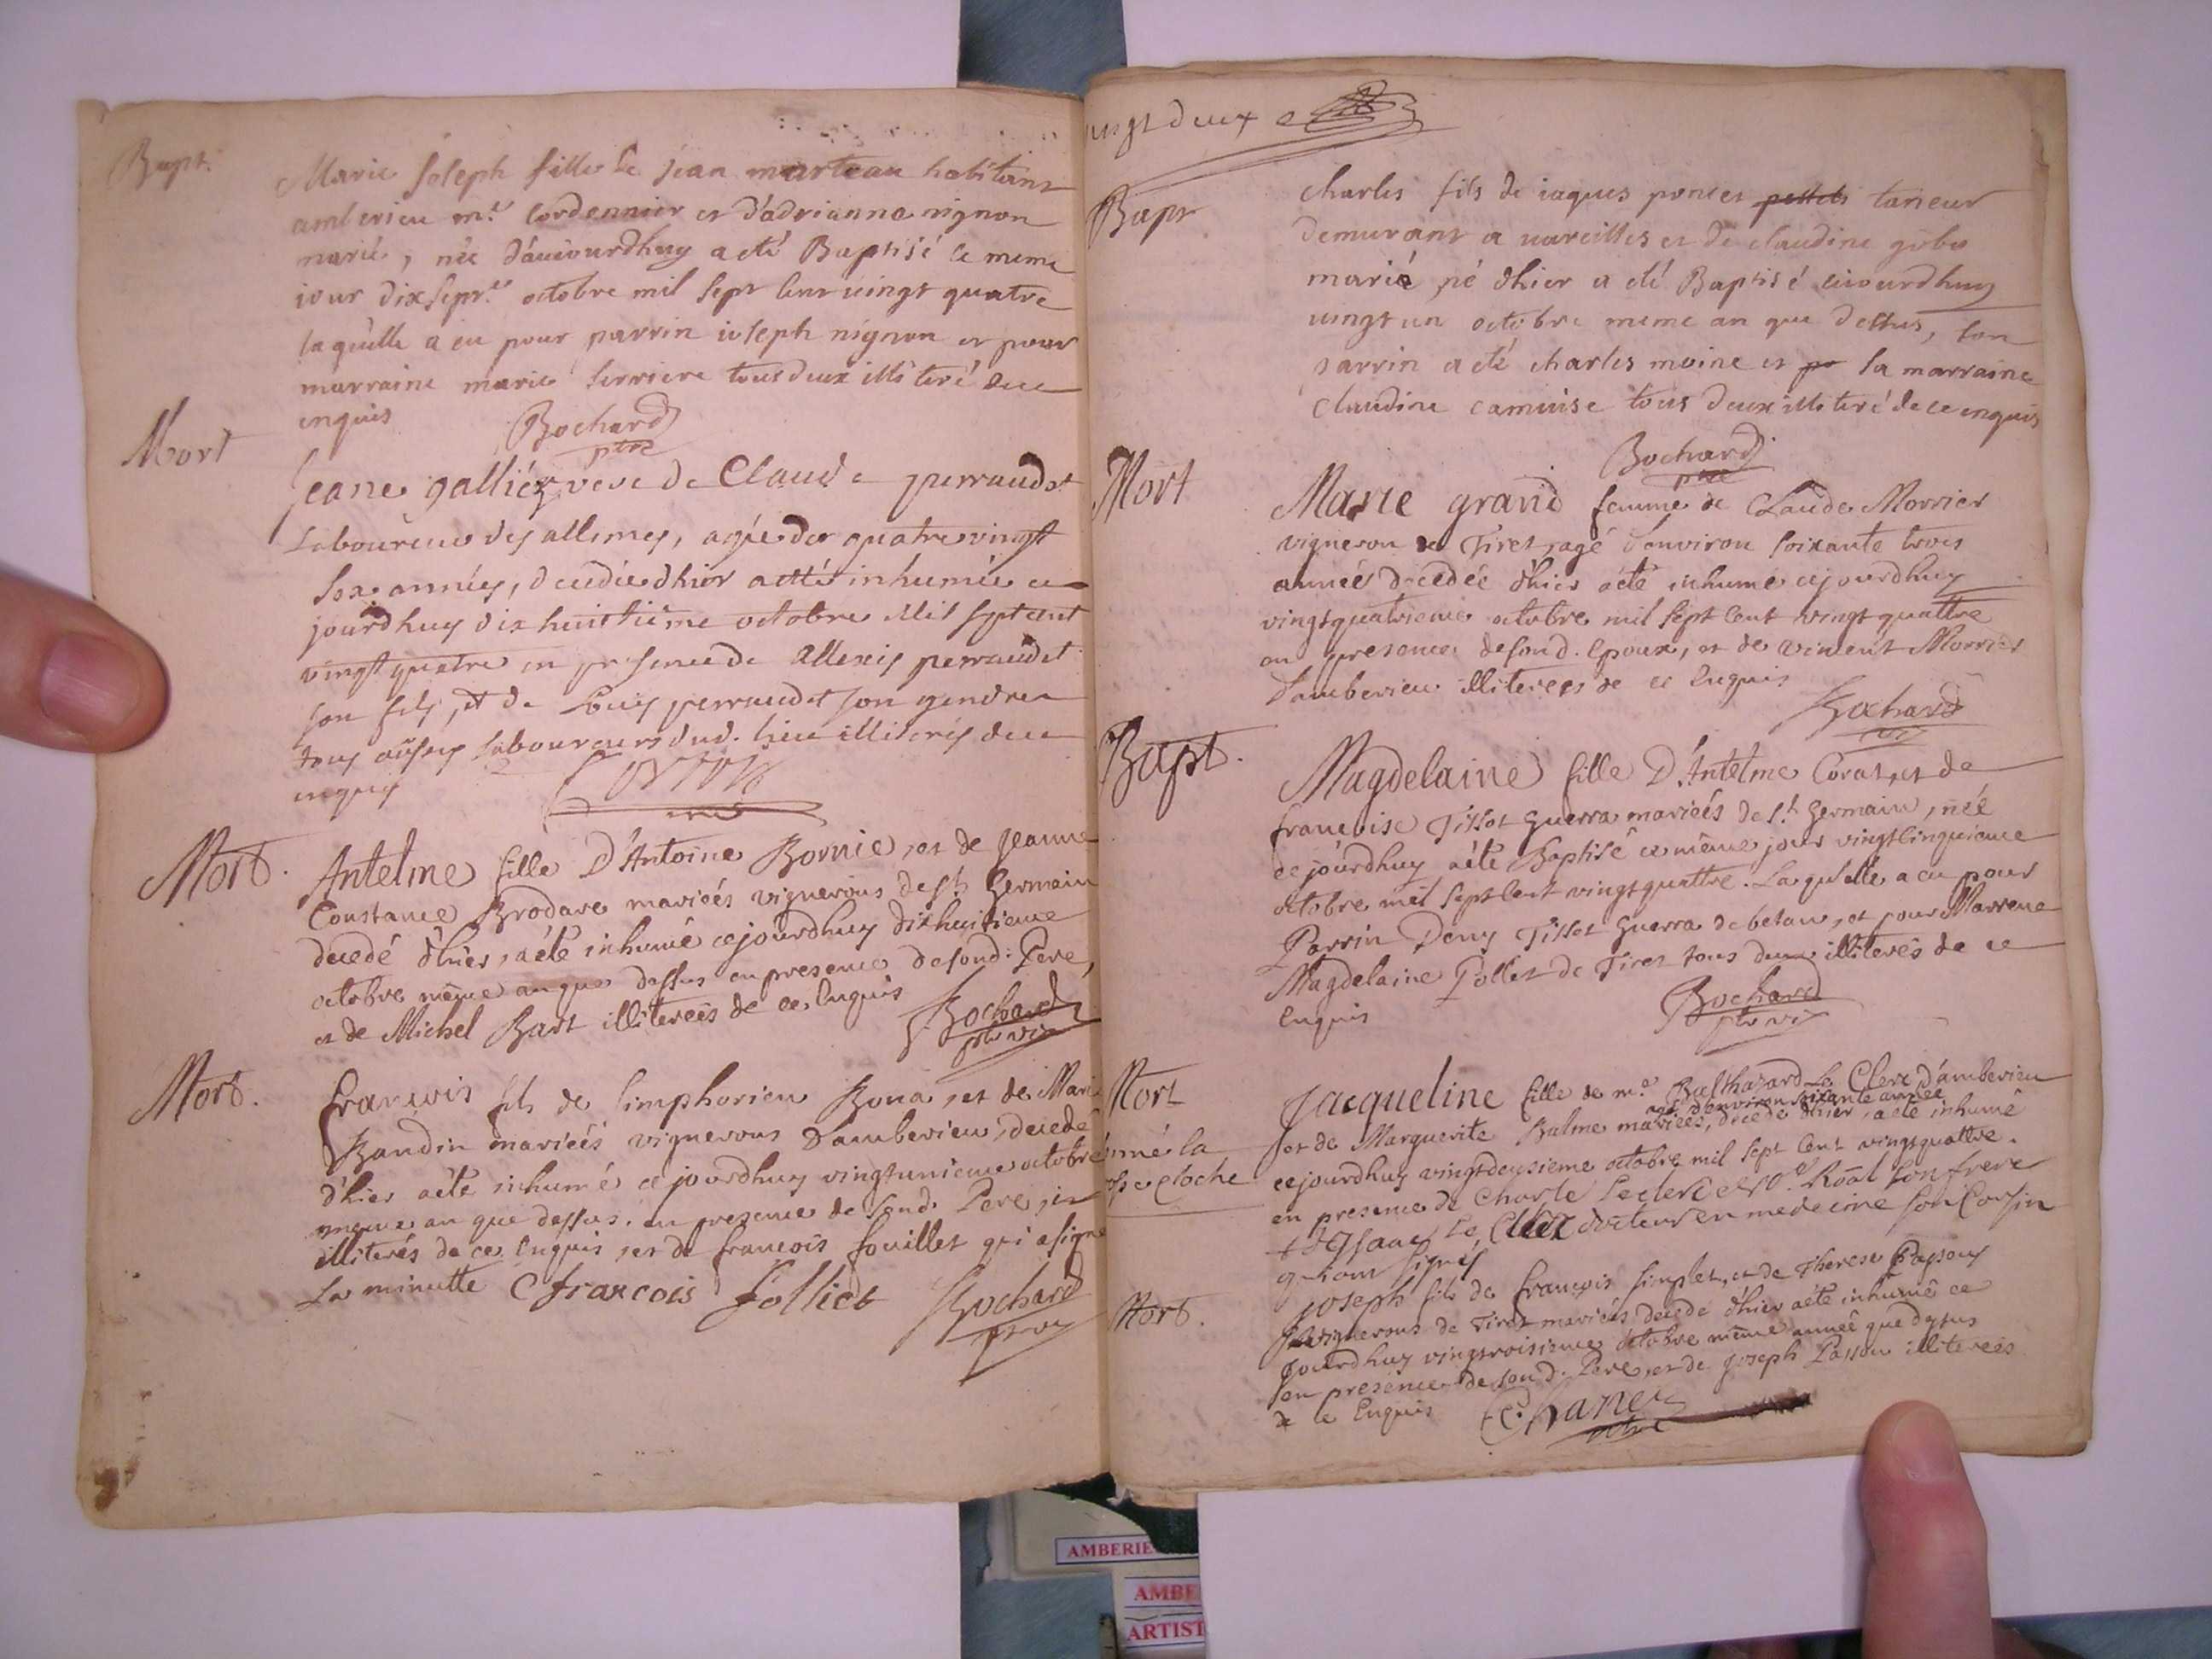 Bapt.
Marie Joseph fille de jean marteau habitant
amberieu m.e Cordennier et d'adrianne nignon
marié, née d'auiourdhuy a eté Baptisé le meme
iour dixsept.e octobre mil sept cent vingt quatre
laquelle a eu pour parrin ioseph nignon et pour
marraine marie serriere tous deux illiteré de ce
enquis
Bochard
ptre
Mort
Jeane galliéz veve de Claude perraudet
Laboureur des allimes, agée de quatre vingt
six années, decedée dhier a etté inhumée ce
jourdhuy dix huittième octobre Mil sept cent
vingt quatre en presence de Allexis perraudet
son fils, et de Louis perraudet son gendre
tous aussy laboureurs dud. lieu illiterés de ce
enquis
Mort.
Antelme fille D'Antoine Bornie, et de Jeanne
Constance Brodare mariéés vignerons de st Germain
decedé d'hier, a été inhumé cejourdhuy dixhuitieme
octobre même an que dessus en presence de sond: Pere,
et de Michel Bart illiterés de ce Enquis
Bochard
ptre vic
Mort.
francois fils de Simphorien Bona, et de Marie
Baudin mariéés vignerons D'amberieu, decedé
d'hier a été inhumé ce jourdhuy vingtunieme octobre
meme an que dessus. en presence de sond. Pere, et
illiterés de ce Enquis, et de francois fouillet qui a signé
La minutte francois folliet Bochard
ptre vic
vingt deux
Bapt
charles fils de iaques poncet petteti taneur
demurant a vareilles et de claudine gobe
marié né dhier a eté Baptisé ciourdhuy
vingt un octobre meme an que dessus, son
parrin a eté charles moine et po sa marraine
Claudine camuise tous deux illiteré de ce enquis
Bochard
ptre
Mort
Marie grand femme de Claude Morrier
vigneron de Tiret, agé d'environ soixante trois
année decedéé d'hier a été inhumé cejourdhuy
vingtquatrieme octobre mil sept cent vingt quattre
en presence de sond. Epoux, et de vincent Morrier
D'amberieu illiterees de ce Enquis
Bochard
vic
Bapt.
Magdelaine fille D'Antelme Corat, et de
francoise Tissot Guerra mariéés de st. Germain, néé
cejourdhuy a été Baptisé ce même jour vingtcinquieme
octobre mil sept cent vingtquattre. Laquelle a eu pour
Parrin Deny Tissot Guerra de betan, et pour Marrene
Magdelaine Pollet de Tiret tous deux illiterés de ce
Enquis
Bochard
ptre vic
Mort
Jacqueline fille de m.e Balthazard Le Clerc d'amberieu
agé d'environ soixante année
et de Marguerite Balme mariéés, decedé d'hier, a été inhumé
cejourdhuy vingtdeusieme octobre mil sept cent vingtquattre.
en presence de Charle Leclerc Roal son frere
et Isaac Le Clerc docteur en medecine son Cousin
qui ont signés
Mort.
Joseph fils de francois simplet, et de Therese
vignerons de Tiret mariéés decedé d'hier a été inhumé ce
jourdhuy vingtroisieme octobre même année que dessus
en presence de sond. Pere, et de Joseph Passou illiterees
de ce Enquis
ptre
AMBERIE
AMBE
ARTIST